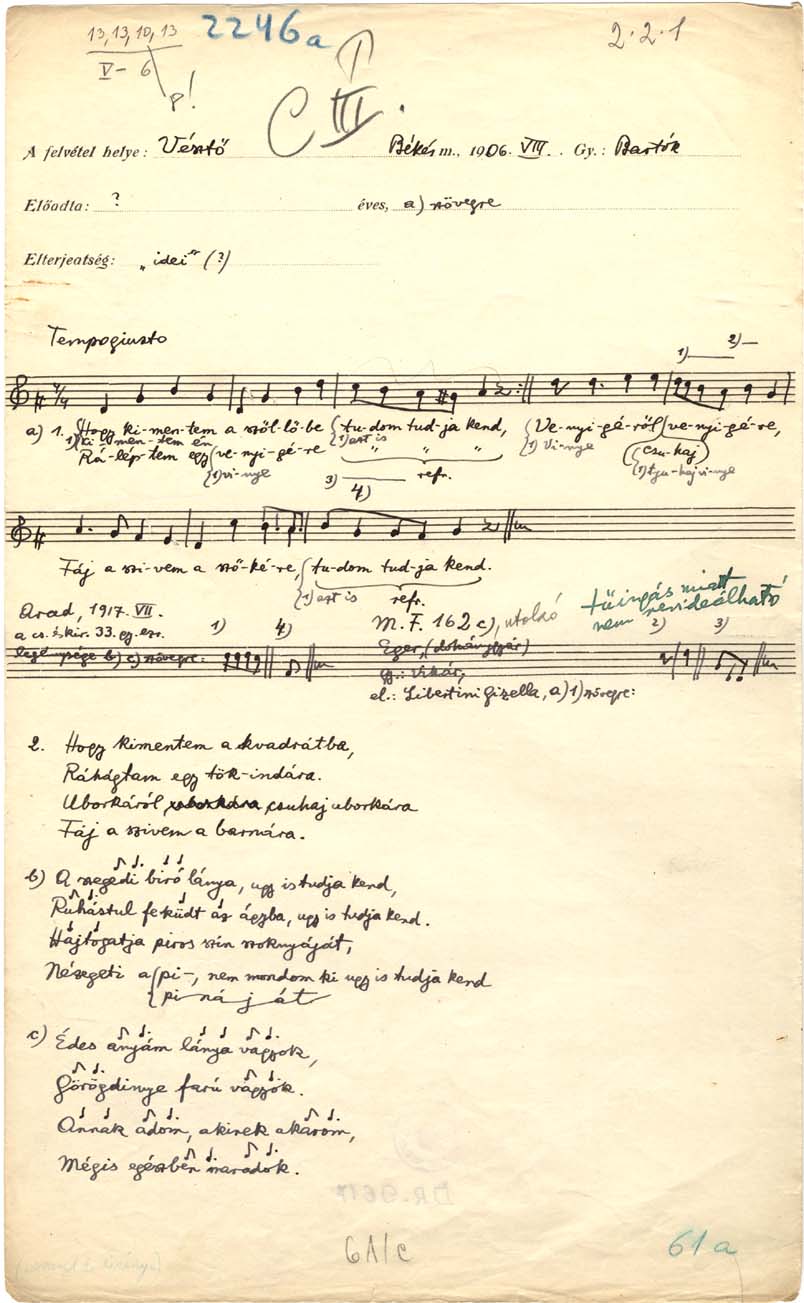 13, 13, 10, 13
2246a
2.2.1
V - 6
8!
C III.
A felvétel helye: Vésztő Békés m., 1906. VIII. Gy.: Bartók
Előadta: ? éves, a) szövegre
Elterjeatség: „idei" (?)
Tempo giusto
1) 2)
a) 1. Hogy ki-men-tem a szől-lő-be tu-dom tud-ja kend, Ve-nyi-gé-ről ve-nyi-gé-re,
1) ki men-tem én 1) azt is 1) Vi-nye csu-haj
Rá-lép-tem egy ve-nyi-gé-re " " " 1) tyu-haj vi-nye
1) vi-nye refr.
3) 4)
Fáj a szi-vem a sző-ké-re, tu-dom tud-ja kend.
1) azt is refr.
Arad, 1917. VII. M. F. 162 c), utolsó tűingás miatt
a cs. és kir. 33. gy. ezr. nem revideálható
legénysége b) c) szövegre: 1) 4) Eger, (dohánygyár) 2) 3)
gy.: Vikár,
el.: Libertini Gizella, a) 1) szövegre:
2. Hogy kimentem a kvadrátba,
Ráhágtam egy tök-indára.
Uborkáról uborkára csuhaj uborkára
Fáj a szivem a barnára.
b) A szegedi biró lánya, ugy is tudja kend,
Ruhástul feküdt az ágyba, ugy is tudja kend.
Hajtogatja piros szin szoknyáját,
Nézegeti a pi-, nem mondom ki ugy is tudja kend
pináját
c) Édes anyám lánya vagyok,
Görögdinye farú vagyok.
Annak adom, akinek akarom,
Mégis egészben maradok.
DR. 9617
61/c
61a